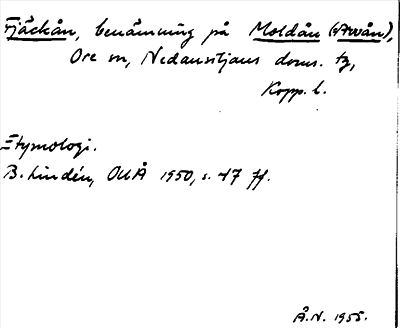 Fjäckån, benämning på Moldån (
Ore sn, Nedansiljans doms. tg,
Kopp. l.
Etymologi.
B. Lindén, OUÅ 1950, s. 47 ff.
Å.N. 1955.